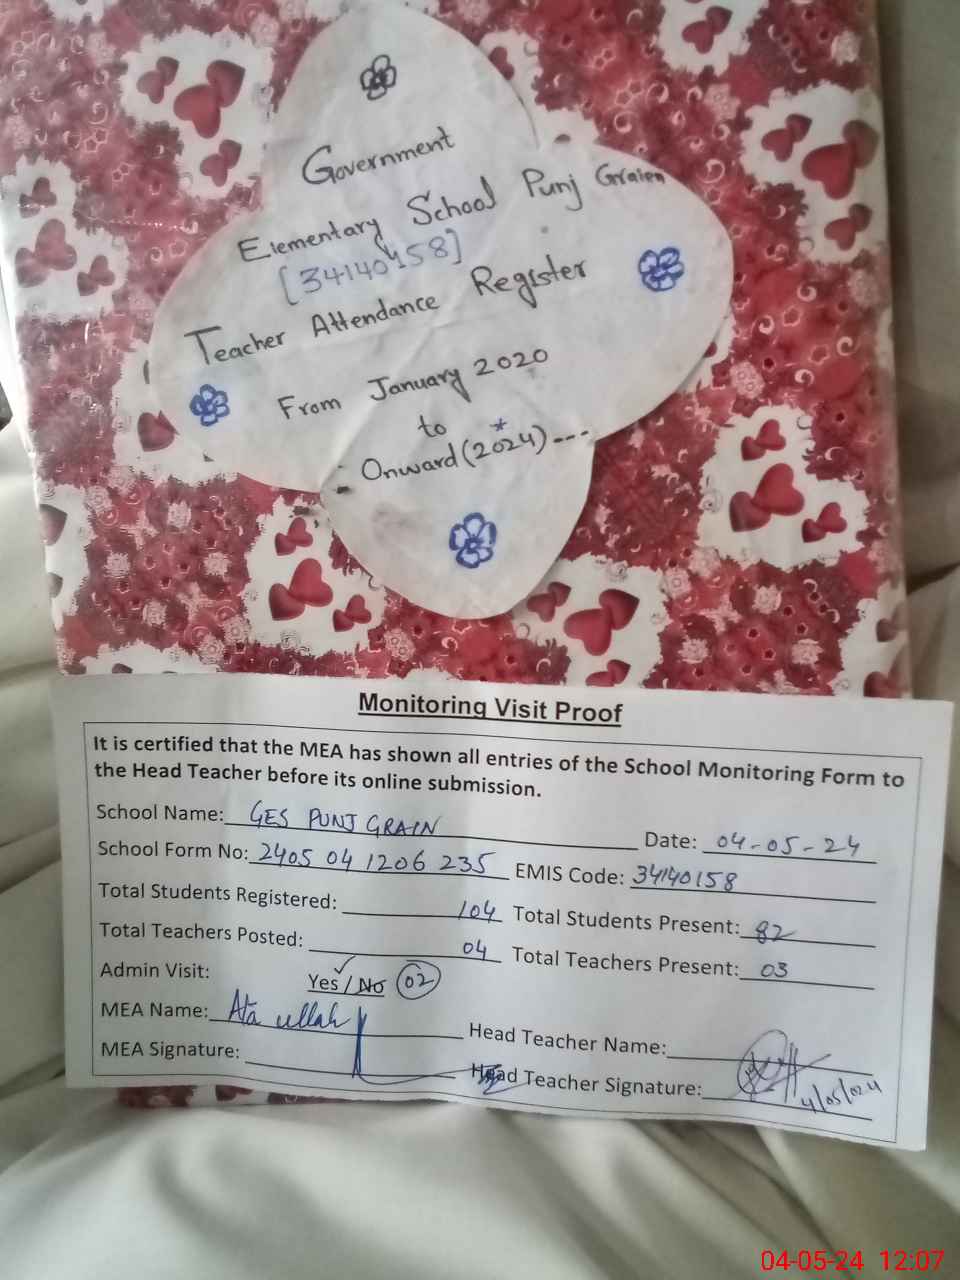 Government
Elementary School Punj Graien
[34140158]
Teacher Attendance Register
From January 2020
to
Onward (2024)---
Monitoring Visit Proof
It is certified that the MEA has shown all entries of the School Monitoring Form to
the Head Teacher before its online submission.
School Name: GES PUNJ GRAIN Date: 04-05-24
School Form No: 2405 04 1206 235 EMIS Code: 34140158
Total Students Registered: 104 Total Students Present: 82
Total Teachers Posted: 04 Total Teachers Present: 03
Admin Visit: Yes / No 02
MEA Name: Ata ullah Head Teacher Name:
MEA Signature: Head Teacher Signature:
4/05/024
04-05-24 12:07